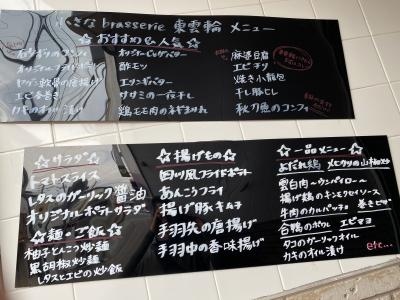 さな brasserie 東雲輪 メニュー
☆おすすめ&人気☆
オリジナルジャガバター
酢モツ
エリンギバター
ササミの一夜干し
鶏モモ肉の
麻婆豆腐
エビチリ
焼き小籠包
干し豚じし
秋刀魚のコンフィ
カキのオイル漬け
☆サラダ☆
トマトスライス
レタスのガーリック醤油
オリジナルポテトサラダ
☆麺・ご飯☆
柚子とんこつ炒麺
黒胡椒炒麺
レタスとエビの炒飯
☆揚げもの☆
四川風フライドポテト
あんこうフライ
揚げ豚キムチ
手羽先の唐揚げ
手羽中の香味揚げ
☆一品メニュー☆
よだれ鶏
雲白肉 ーウンパイロー
揚げ鶏のキンモクセイソース
牛肉のカルパッチョ
合鴨のポワレ エビマヨ
タコのガーリックオイル
カキのオイル漬け
etc...